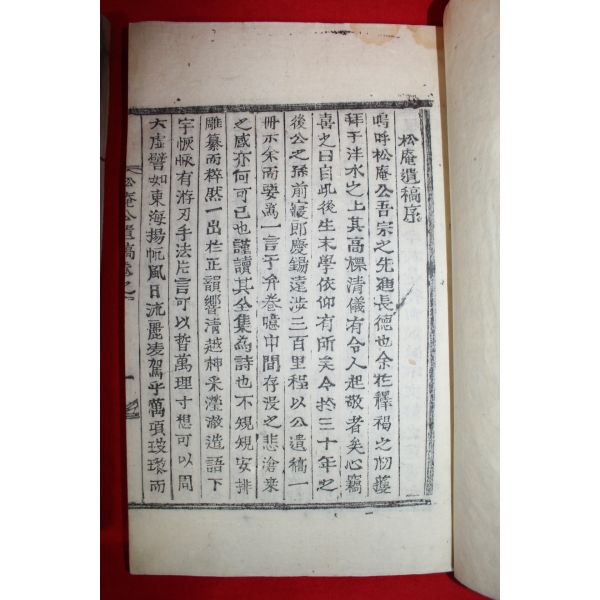 松庵遺稿序
嗚呼松庵公吾宗之先進長德也余於釋褐之初獲
拜于泮水之上其高標清儀有令人起敬者矣心竊
喜之曰自此後生末學依仰有所矣今於三十年之
後公之孫前寢郎慶錫遠涉三百里程以公遺稿一
冊示余而要為一言于弁卷噫中間存沒之悲滄桑
之感亦何可已也謹讀其全集為詩也不規規安排
雕纂而粹然一出於正韻響清越神采瀅澈遣語下
字恢恢有游刃手法片言可以哲萬理寸想可以周
大虛譬如東海揚帆風日流麗凌駕乎萬頃琉璃而
松庵公遺稿卷之
一